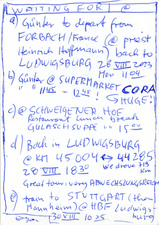 WAITING FOR
a) Günter to depart from
FORBACH/France (@ priest
Heinrich Hoffmann) back to
LUDWIGSBURG 28 VIII 2003
b) Günter @ SUPERMARKET CORA
1145 - 1221 HUGE!
c) @ SCHWEIGENER HOF
Restaurant
GULASCHSUPPE 15
d) Back in LUDWIGSBURG
@ KM 45004 ↔ 44285
28 VIII 1830 We drove
Great tour, very ABWECHSLUNGSREICH
e) train to STUTTGART (then
Mannheim) @ HBF Ludwigs-
burg
30 VIII 10 25